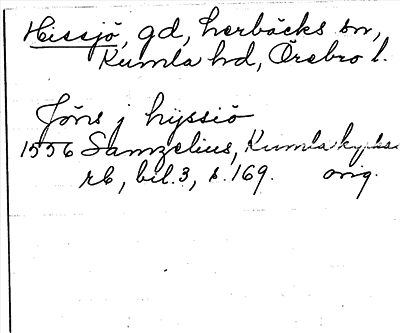 Hissjö, gd, Lerbäcks sn,
Kumla hd, Örebro l.
Jöns j hyssiö
1556 Samzelius, Kumla kyrkas
rb, bil. 3, s. 169. orig.